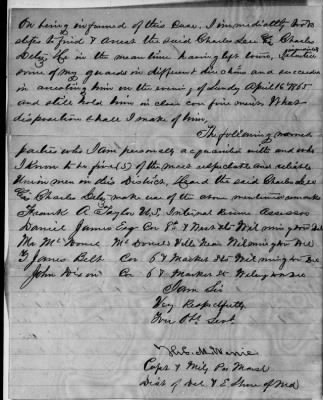 On being informed of this Case. I immediately took
steps to find & arrest the said Charles Lee
he in the mean time having left town,
some of my guards in different directions and succeeded
in arresting him on the evening of Sunday April 16 1865
and still hold him in close confinement. What
disposition shall I make of him.
The following named
parties who I am personally acquainted with and who
I know to be five (5) of the most respectable and reliable
Union men in this District, Heard the said Charles Lee
make use of the above mentioned remarks
Frank A Taylor U.S. Internal Revenue Assessor
Daniel James Esq Cor 8th & Market Sts Wilmington Del
Mr near Wilmington Del
James Belt Cor 6 & Market Sts Wilmington Del
John Dixon Cor 6 & Market St Wilmington
I am Sir
Very Respectfully
Your Obt. Servt.
Capt & Pro Marsh
Dist of Del & E Shore of Md